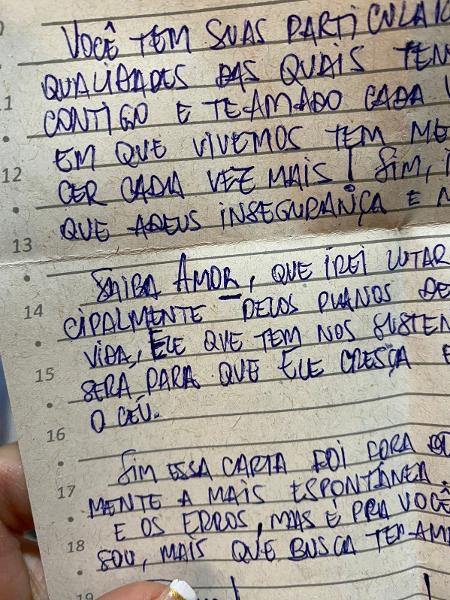 VOCÊ TEM SUAS PARTICULARI
QUALIDADES DAS QUAIS TEN
11
CONTIGO E TE AMADO CADA V
EM QUE VIVEMOS TEM ME
12
CER CADA VEZ MAIS! SIM, I
QUE ADEUS INSEGURANÇA E
13
SAIBA AMOR, QUE IREI LUTAR
14
CIPALMENTE PELOS PLANOS DE
VIDA, ELE QUE TEM NOS SUSTEN
15
SERÁ PARA QUE ELE CRESÇA E
O CÉU.
16
SIM ESSA CARTA FOI FORA
17
MENTE A MAIS ESPONTÂNEA.
E OS ERROS, MAS É PRA VOCÊ
18
SOU, MAIS QUE BUSCA TER AM
19